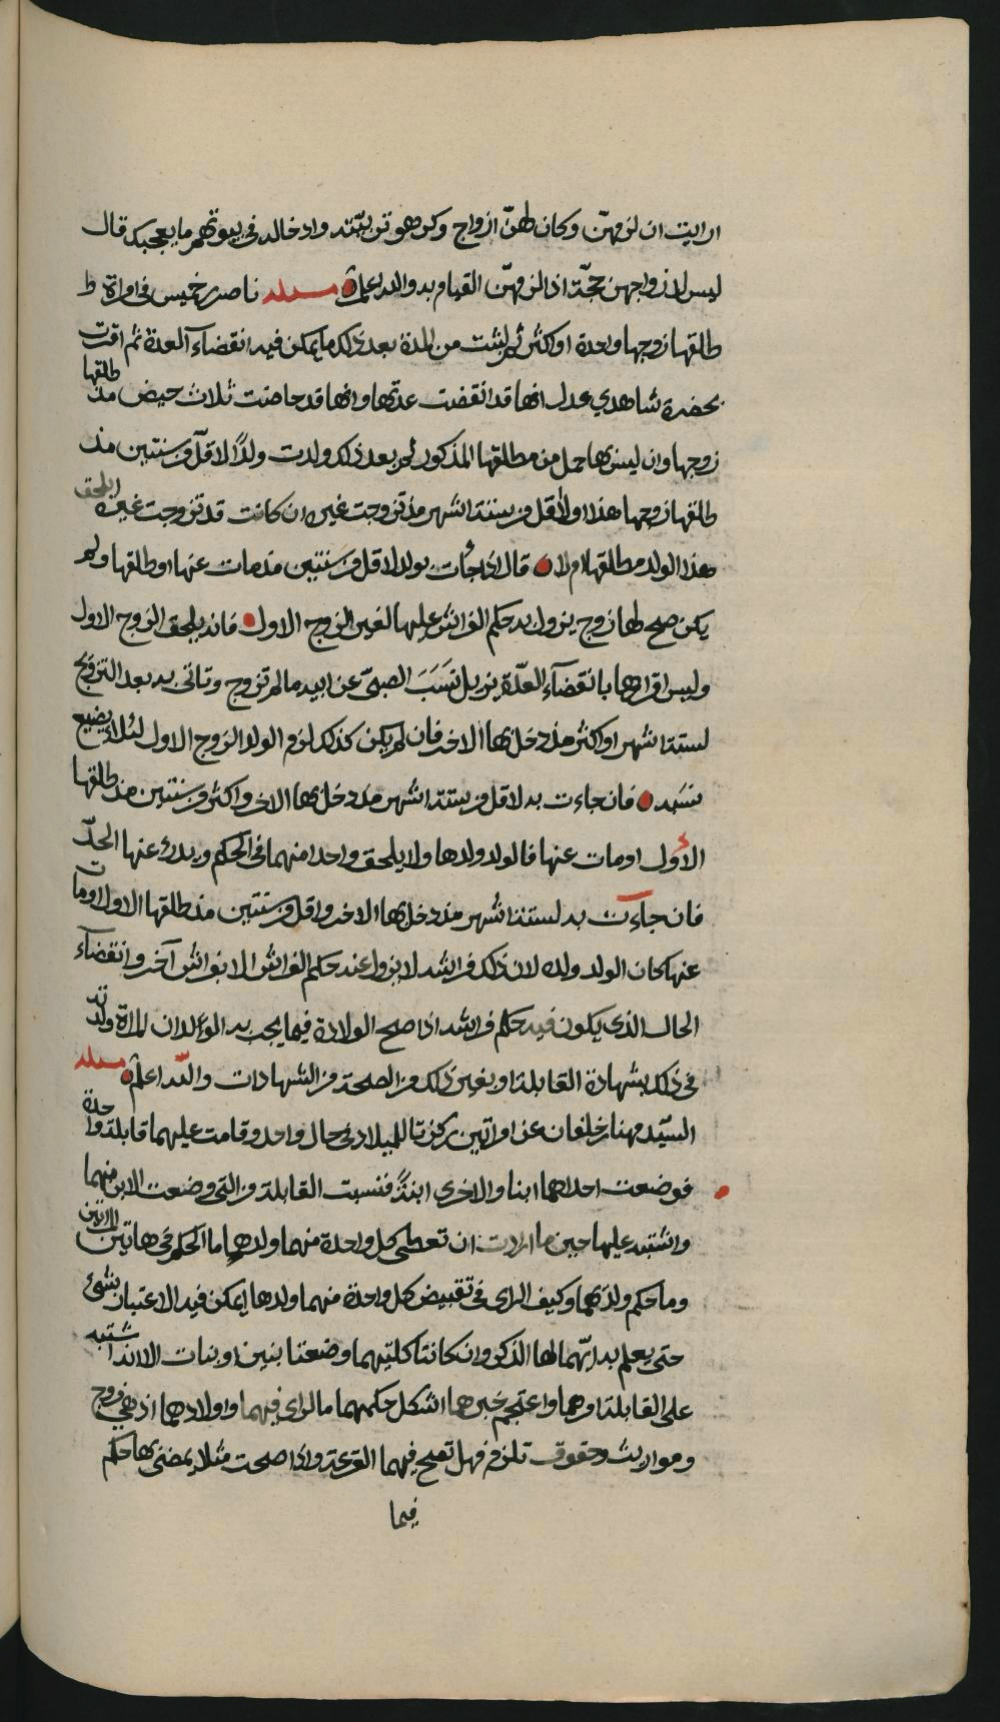 ارايت ان لزمهنّ وكان لهنّ ازواج وكرهو تربيّته وادخاله في بيوتهم ما يعجبك قال
ليس لازواجهن حجّة اذا لزمهنّ القيام به والله اعلم مسئلة ناصر بن خميس في امراة
طلقها زوجها واحدة او اكثر ثم لبثت من المدة بعد ذلك ما يمكن فيه انقضآء العدة ثم اقرت
بحضرة شاهدي عدل انها قد انقضت عدتها وانها قد حاضت ثلاث حيض مذ طلقها
زوجها وان ليس بها حمل من مطلقها المذكور ثم بعد ذلك ولدت ولدًا لاقلّ من سنتين مذ
طلقها زوجها هذا او لاقل من ستة اشهر مذ تزوجت غيره ان كانت قد تزوجت غيره ايلحق
هذا الولد مطلقها ام لا قال اذا جات بولد لاقل من سنتين مذ مات عنها او طلقها ولم
يكن صح لها زوج يزول به حكم الفراش عليها لغير الزوج الاول فانه يلحق الزوج الاول
وليس اقرارهما بانقضآء العدّة يزيل نسَبَ الصبيّ عن ابيه ما لم تزوج وتاتى به بعد التزويج
لستة اشهر او اكثر مذ دخل بها الاخر فان لم يكن كذلك لزم الولد الزوج الاول لئلا يضيع
نسَبه فان جاءت به لاقل من ستة اشهر مذ دخل بها الاخر واكثر من سنتين مذ طلقها
الأول او مات عنها فالولد ولدها ولا يلحق واحدا منهما في الحكم ويدرئ عنها الحدّ
فان جاءت به لستة اشهر مذ دخل بها الاخر واقل من سنتين مذ طلقها الاول او مات
عنها كان الولد ولده لان ذلك فراشه لا يزول عنه حكم الفراش الا بفراش آخر وانقضآء
الحال الذي يكون فيه حكم فراشه اذا صح الولادة فيما يجب به الولد ان المراة ولدته
في ذلك بشهادة القابلة او بغير ذلك من الصحة من الشهادات والله اعلم مسئلة
السيّد مهنا بن خلفان عن امراتين ركزتا للميلاد في حال واحد وقامت عليهما قابلة واحدة
فوضعت احداهما ابنا والاخرى ابنةً فنسيت القابلة من التي وضعت الابن منهما
واشتبه عليها حين ما ارادت ان تعطي كل واحدة منهما ولدها ما الحكم في هاتين المراتين
وما حكم ولديهما وكيف الراى في تقبيض كل واحدة منهما ولدها ايمكن فيه الاعتبار بشئ
حتى يعلم به ايّهما لها الذكر وان كانتا كلتيهما وضعتا بنين او بنات الا انه اشتبه
على القابلة امرهما واعتجم خبرهما اشكل حكمهما ما الراى فيهما واولادهما اذ هي فروج
ومواريث وحقوق تلزم فهل تصح فيهما القرعة واذا صحت مثلا يمضي بها حكم
فيما